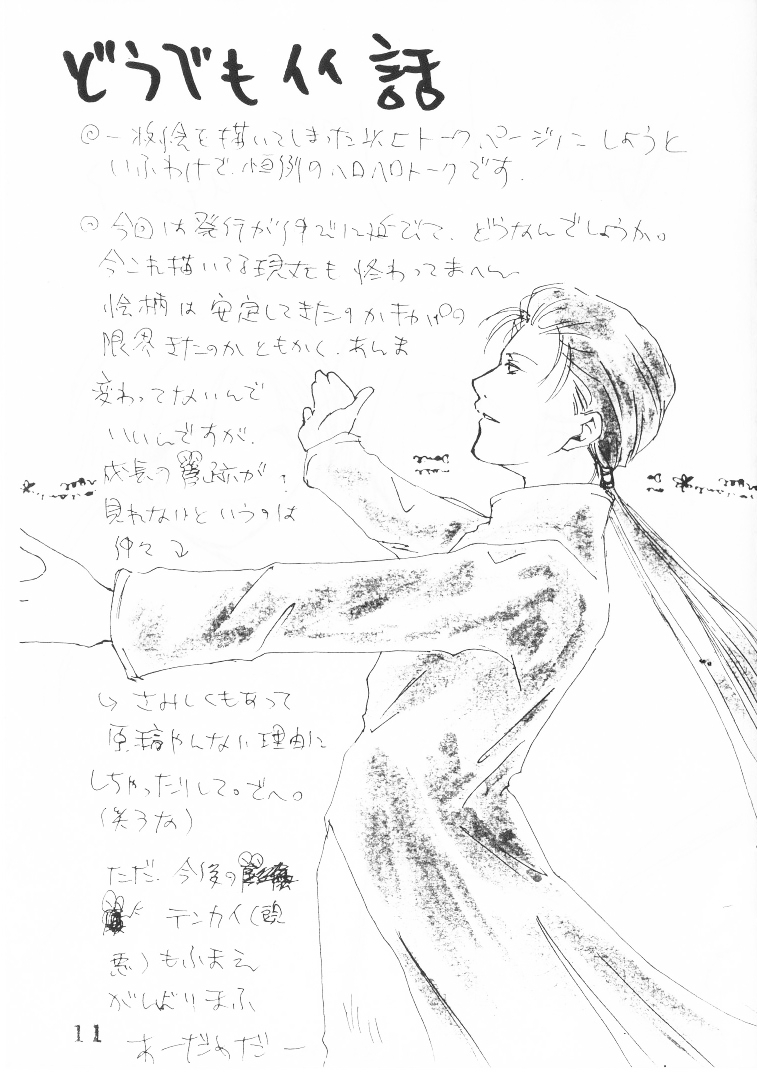 どうでもイイ話
◎一枚絵を描いてしまった以上トークページにしようと
いふわけで、恒例のヘロヘロトークです.
◎今回は発行がのびのびに延びて、どうなんでしょうか。
今これ描いてる現在も終わってまへん
絵柄は安定してきたのかキャパの
限界きたのかともかく、あんま
変わってないんで
いいんですが、
成長の軌跡が
見れないというのは
仲々
↳さみしくもあって
原稿やんない理由に
しちゃったりして。でへ。
(笑うな)
ただ、今後の
テンカイ(頭
悪)もふまえ
がんばりまふ
あーだめだー
11